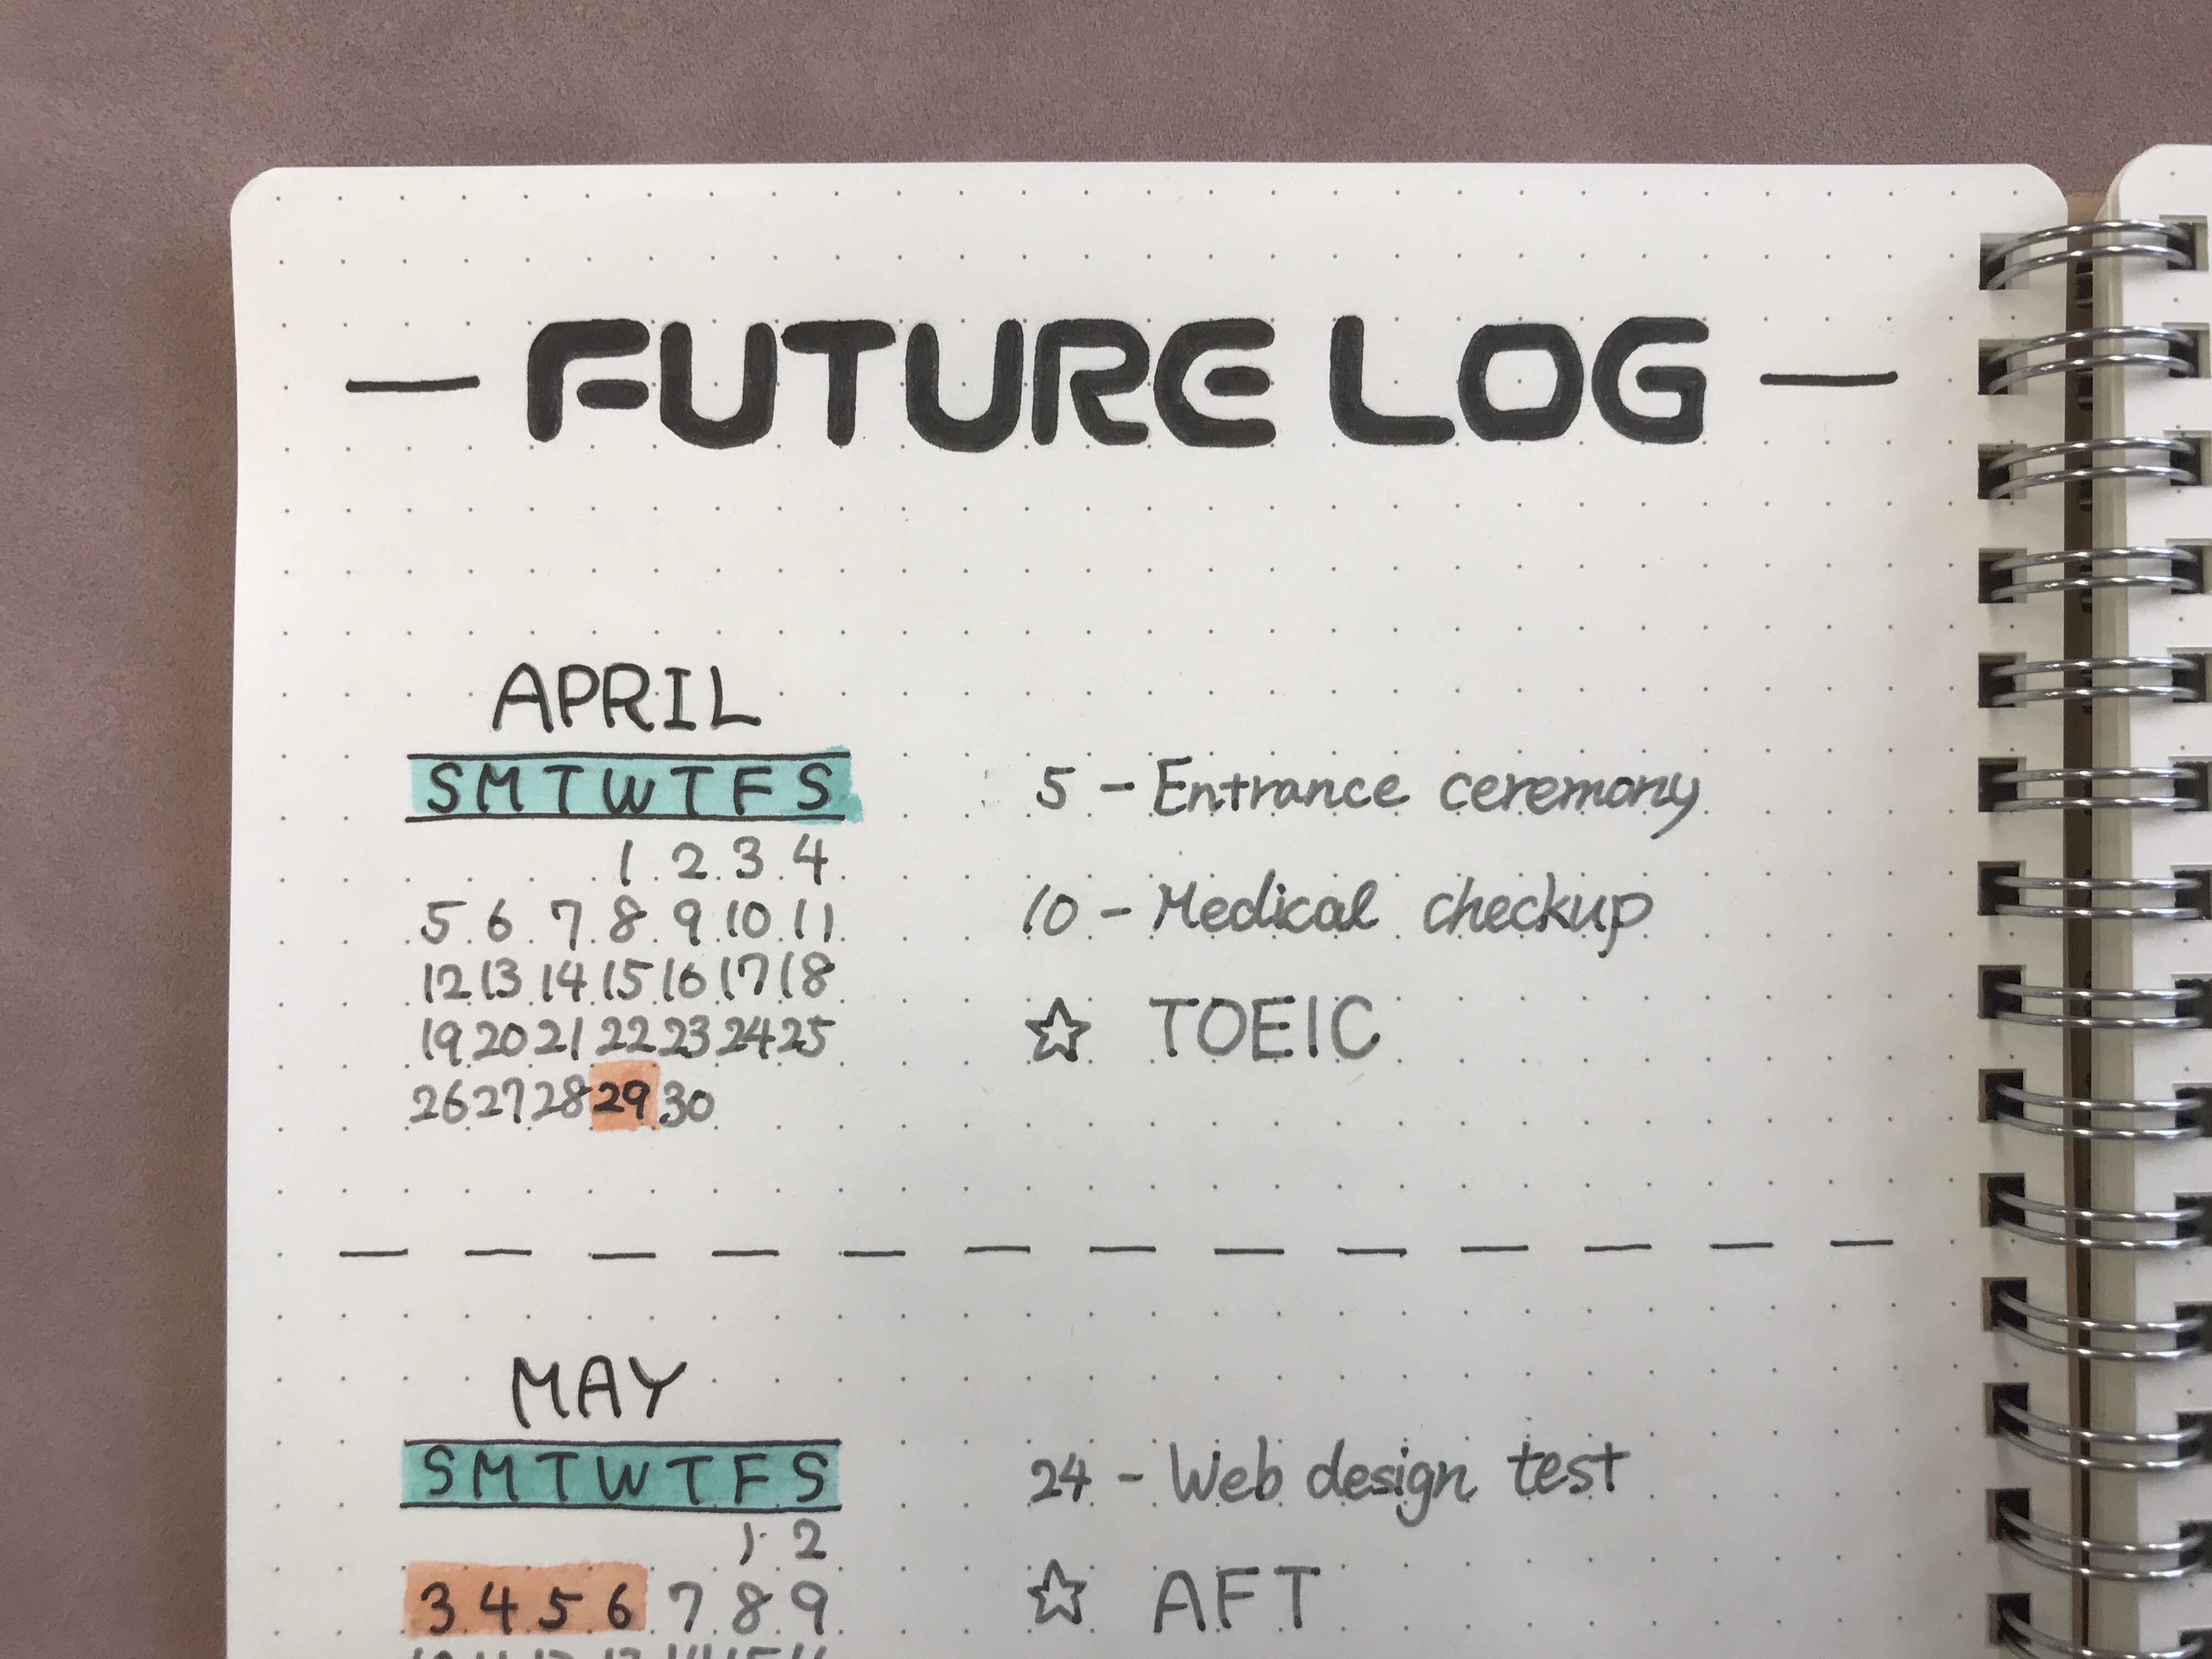 — FUTURE LOG —
APRIL
S M T W T F S
1 2 3 4
5 6 7 8 9 10 11
12 13 14 15 16 17 18
19 20 21 22 23 24 25
26 27 28 29 30
5 - Entrance ceremony
10 - Medical checkup
☆ TOEIC
MAY
S M T W T F S
1 2
3 4 5 6 7 8 9
24 - Web design test
☆ AFT